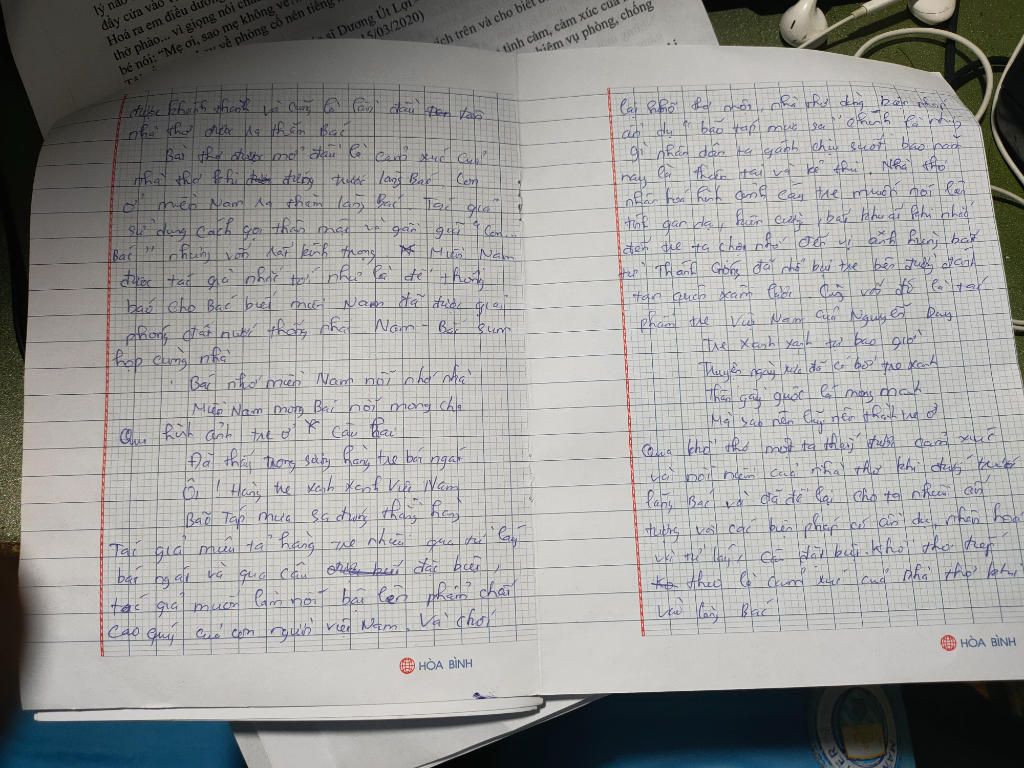 lý nào
dây cứa vào v
Hoá ra em điều dưỡng
thở phào... vì giọng nói ch
bé nói: "Mẹ ơi, sao mẹ không về
về phòng cố nén tiếng
sĩ Dương Út Lợi
15/03/2020)
ích trên và cho biết
tình cảm, cảm xúc của
nhiệm vụ phòng, chống
được khánh thành và cũng là lần đầu tiên
nhà thơ được ra thăm Bác
Bài thơ được mở đầu là cảm xúc của
nhà thơ khi đứng trước lăng Bác. Con
ở miền Nam ra thăm lăng Bác Tác giả
sử dụng cách gọi thân mật và gần gũi "Con...
Bác" nhưng vẫn rất kính trọng Miền Nam
được tác giả nhắc tới như là để thông
báo cho Bác biết miền Nam đã được giải
phóng đất nước thống nhất Nam - Bắc sum
họp cùng nhà
Bác nhớ miền Nam nỗi nhớ nhà
Miền Nam mong Bác nỗi mong cha
Qua hình ảnh tre ở câu hai
Đã thấy trong sương hàng tre bát ngát
Ôi! Hàng tre xanh xanh Việt Nam
Bão Táp mưa sa đứng thẳng hàng
Tác giả miêu tả hàng tre nhiều qua từ láy
bát ngát và qua câu đặc biệt,
tác giả muốn làm nổi bật lên phẩm chất
cao quý của con người Việt Nam. Và chốt
lại khổ thơ một, nhà thơ dùng biện pháp
ẩn dụ "bão táp mưa sa" chính là những
gì nhân dân ta gánh chịu suốt bao năm
nay là thiên tai và kẻ thù. Nhà thơ
nhân hoá hình ảnh cây tre muốn nói lên
tính gan dạ, kiên cường, bất khuất khi nhắc
đến tre ta chợt nhớ đến vị anh hùng bất
tử Thánh Gióng đã nhổ bụi tre bên đường đánh
tan quân xâm lược. Cùng với đó là tác
phẩm tre Việt Nam của Nguyễn Duy
Tre xanh xanh tự bao giờ
Truyện ngày xưa đã có bờ tre xanh
Thân gầy guộc lá mong manh
Mà sao nên lũy nên thành tre ơi
Qua khổ thơ một ta thấy được cảm xúc
và nỗi niềm của nhà thơ khi đứng trước
lăng Bác và đã để lại cho ta nhiều ấn
tượng với các biện pháp có ẩn dụ, nhân hoá
và từ láy, câu đặc biệt. Khổ thơ tiếp
theo là cảm xúc của nhà thơ khi
vào lăng Bác
HÒA BÌNH
HÒA BÌNH